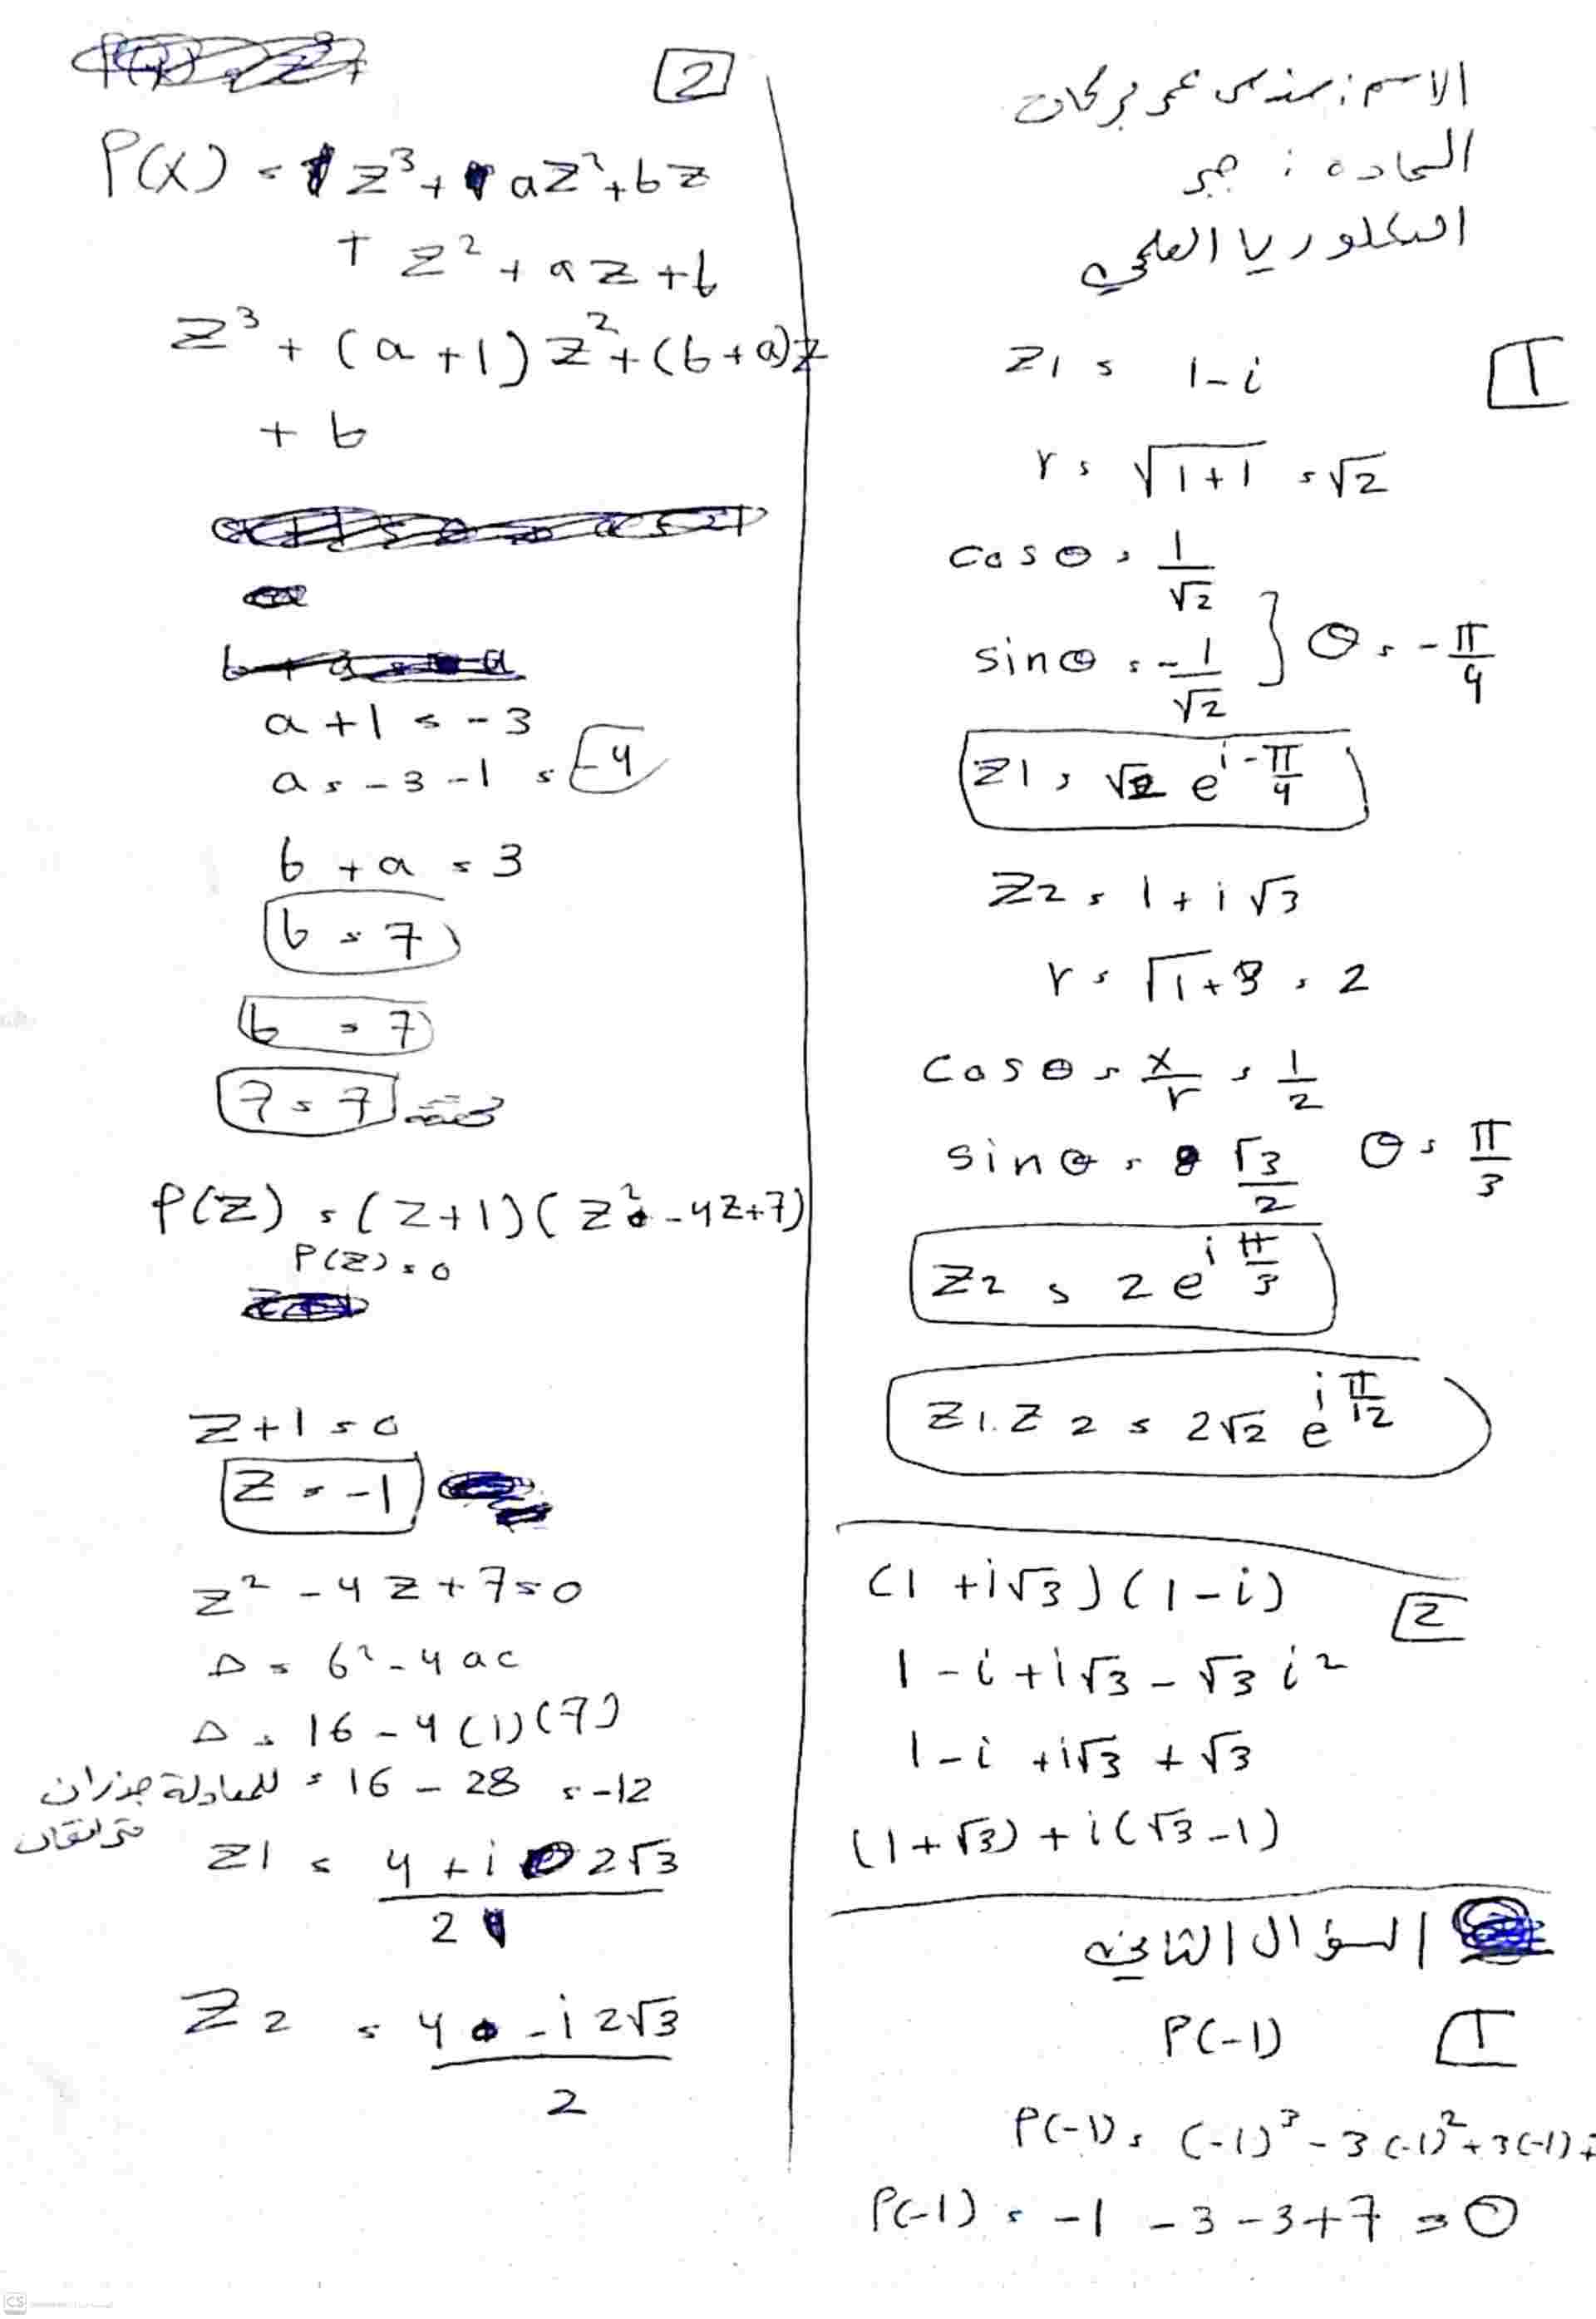 الاسم: عمر بركات
المادة: جبر
البكلوريا العلمي
1
z1 = 1-i
r = √1+1 = √2
cosθ = 1/√2
sinθ = -1/√2 } θ = -π/4
z1 = √2 e^i-π/4
z2 = 1+i√3
r = √1+3 = 2
cosθ = x/r = 1/2
sinθ = √3/2 θ = π/3
z2 = 2e^iπ/3
z1.z2 = 2√2 e^iπ/12
(1+i√3)(1-i)
2
1-i+i√3-√3i²
1-i+i√3+√3
(1+√3)+i(√3-1)
السؤال الثاني
P(-1)
1
P(-1) = (-1)³-3(-1)²+3(-1)+
P(-1) = -1-3-3+7 = 0
2
P(x) = z³+az²+bz
+z²+az+b
z³+(a+1)z²+(b+a)z
+b
a+1 = -3
a = -3-1 = -4
b+a = 3
b = 7
b = 7
7 = 7
P(z) = (z+1)(z²-4z+7)
P(z) = 0
z+1 = 0
z = -1
z²-4z+7 = 0
Δ = b²-4ac
Δ = 16-4(1)(7)
= 16-28 = -12 للمعادلة جذران
مترافقان
z1 = 4+i2√3/2
z2 = 4-i2√3/2
CS